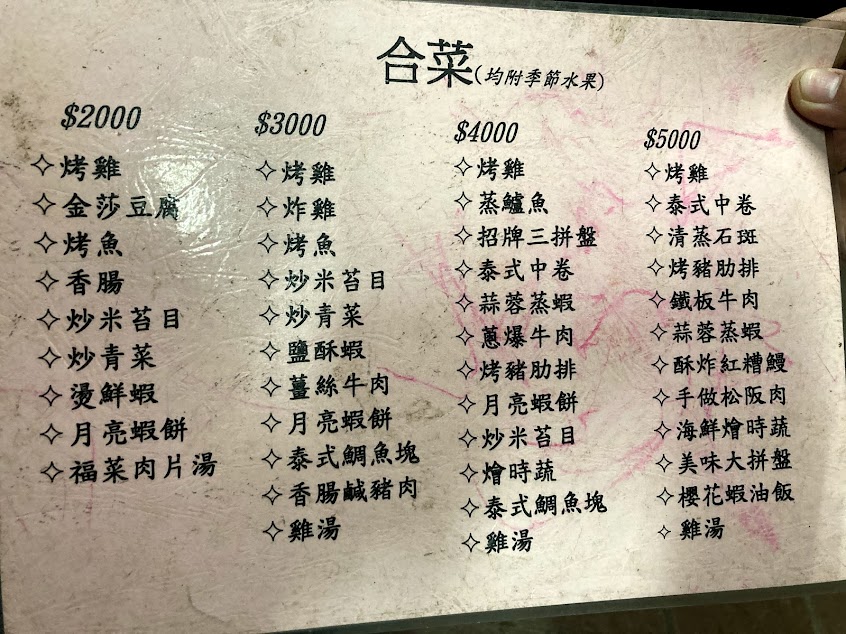 合菜(均附季節水果)
$2000
✧烤雞
✧金莎豆腐
✧烤魚
✧香腸
✧炒米苔目
✧炒青菜
✧燙鮮蝦
✧月亮蝦餅
✧福菜肉片湯
$3000
✧烤雞
✧炸雞
✧烤魚
✧炒米苔目
✧炒青菜
✧鹽酥蝦
✧薑絲牛肉
✧月亮蝦餅
✧泰式鯛魚塊
✧香腸鹹豬肉
✧雞湯
$4000
✧烤雞
✧蒸鱸魚
✧招牌三拼盤
✧泰式中卷
✧蒜蓉蒸蝦
✧蔥爆牛肉
✧烤豬肋排
✧月亮蝦餅
✧炒米苔目
✧燴時蔬
✧泰式鯛魚塊
✧雞湯
$5000
✧烤雞
✧泰式中卷
✧清蒸石斑
✧烤豬肋排
✧鐵板牛肉
✧蒜蓉蒸蝦
✧酥炸紅糟鰻
✧手做松阪肉
✧海鮮燴時蔬
✧美味大拼盤
✧櫻花蝦油飯
✧雞湯